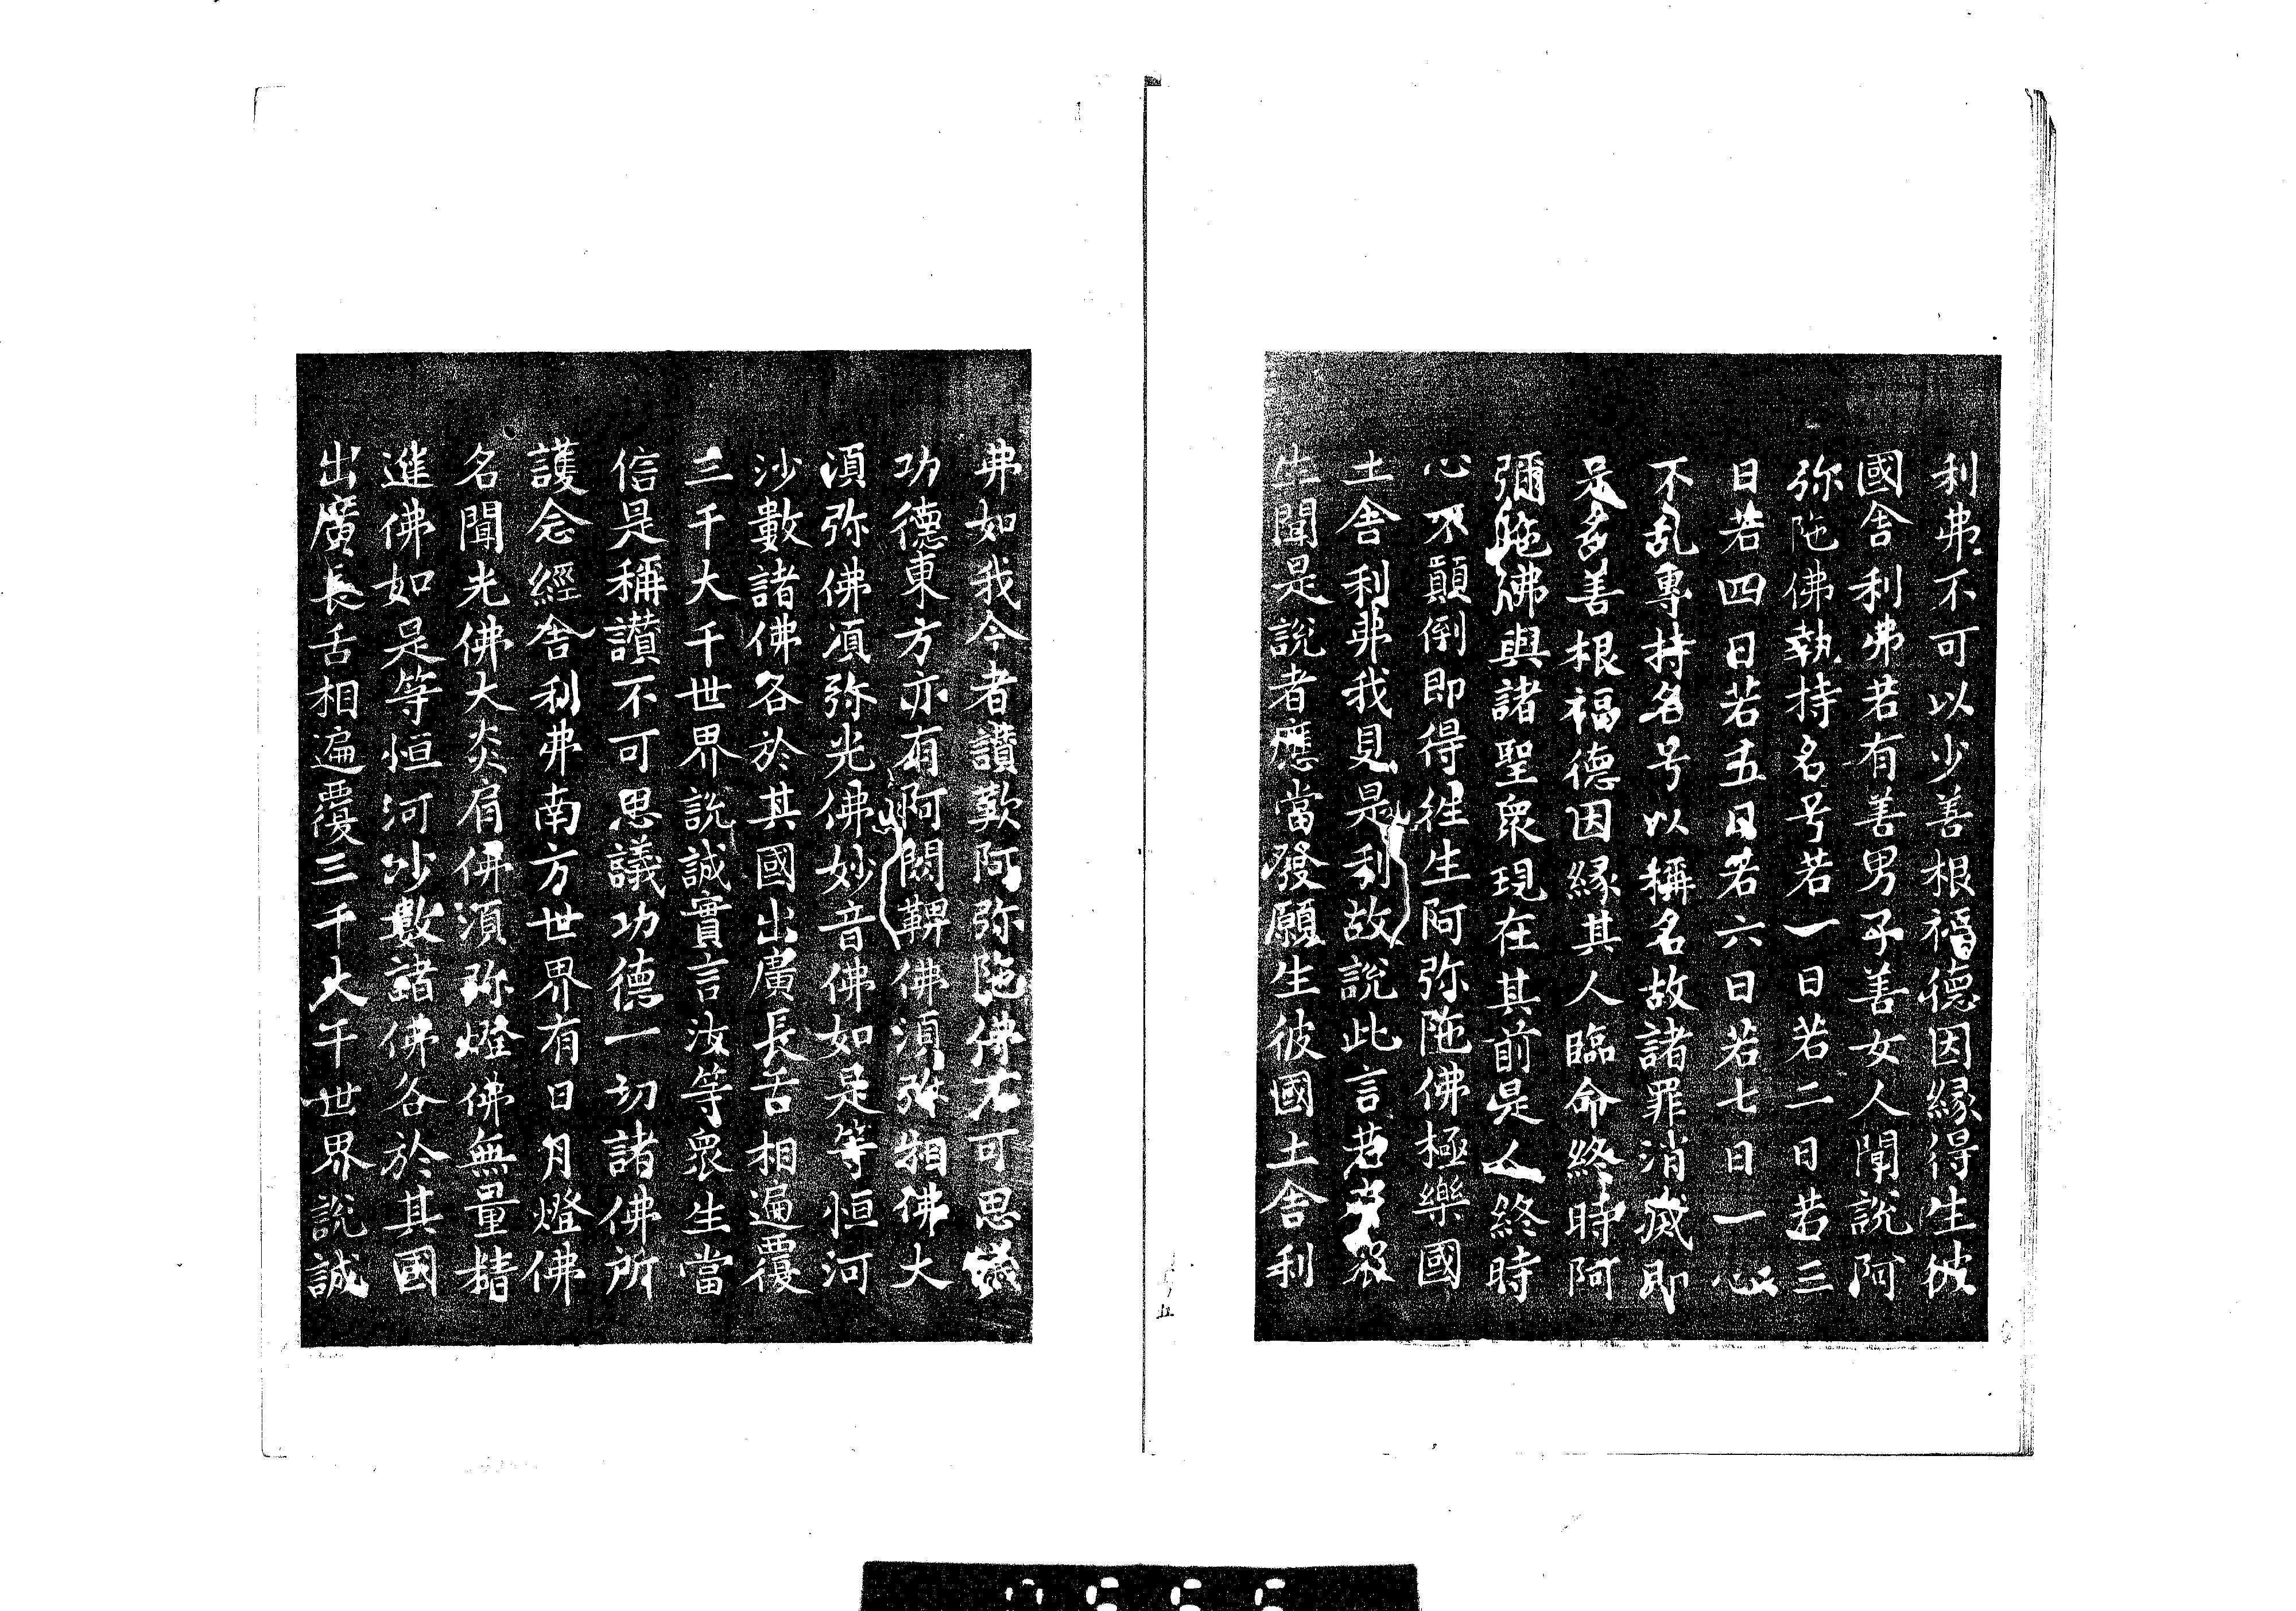 利弗不可以少善根福德因緣得生彼
國舎利弗若有善男子善女人聞說阿
弥陁佛執持名号若一日若二日若三
日若四日若五日若六日若七日一心
不乱專持名号以稱名故諸罪消滅即
是多善根福德因緣其人臨命終時阿
彌陁佛與諸聖衆現在其前是人終時
心不顛倒即得往生阿弥陁佛極樂國
土舎利弗我見是利故說此言若有衆
生聞是說者應當發願生彼國土舎利
弗如我今者讃歎阿弥陁佛不可思議
功德東方亦有阿閦鞞佛湏弥相佛大
湏弥佛湏弥光佛妙音佛如是等恒河
沙數諸佛各於其國出廣長舌相遍覆
三千大千世界說誠實言汝等衆生當
信是稱讃不可思議功德一切諸佛所
護念經舎利弗南方世界有日月燈佛
名聞光佛大炎肩佛湏弥燈佛無量精
進佛如是等恒河沙數諸佛各於其國
出廣長舌相遍覆三千大千世界說誠